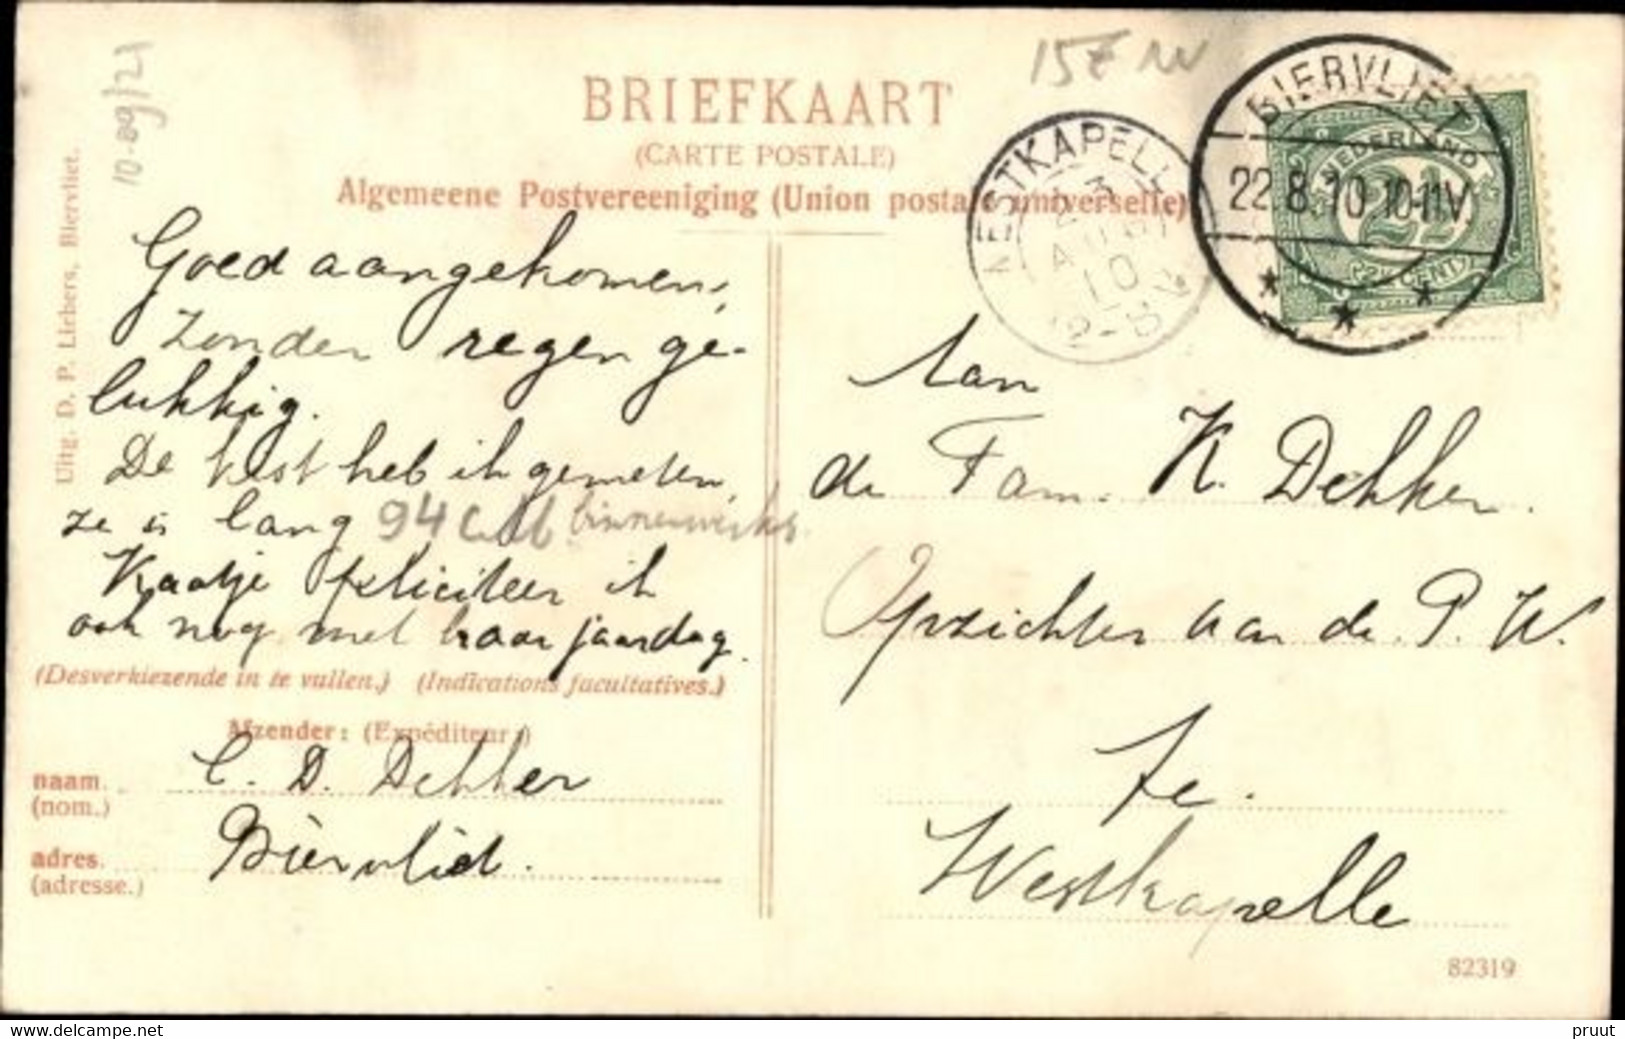 10-09/21
15E
BRIEFKAART
(CARTE POSTALE)
Algemeene Postvereeniging (Union postale universelle)
Uitg. D. P. Liebers, Biervliet.
WESTKAPELLE
23
AUG
10
12-8V
BIERVLIET
22.8.10 10-11V.
NEDERLAND
2½
(2½ CENT)
Goed aangekomen,
Zonder regen ge-
lukkig.
De kist heb ik gemeten,
ze is lang 94 c.M binnenwerks.
Kaatje feliciteer ik
ook nog met haar jaardag.
(Desverkiezende in te vullen.) (Indications facultatives.)
Afzender: (Expéditeur:)
naam. C. D. Dekker
(nom.)
adres. Biervliet.
(adresse.)
Aan
de Fam. K. Dekker.
Opzichter aan de P. W.
Te.
Westkapelle
82319
pruut